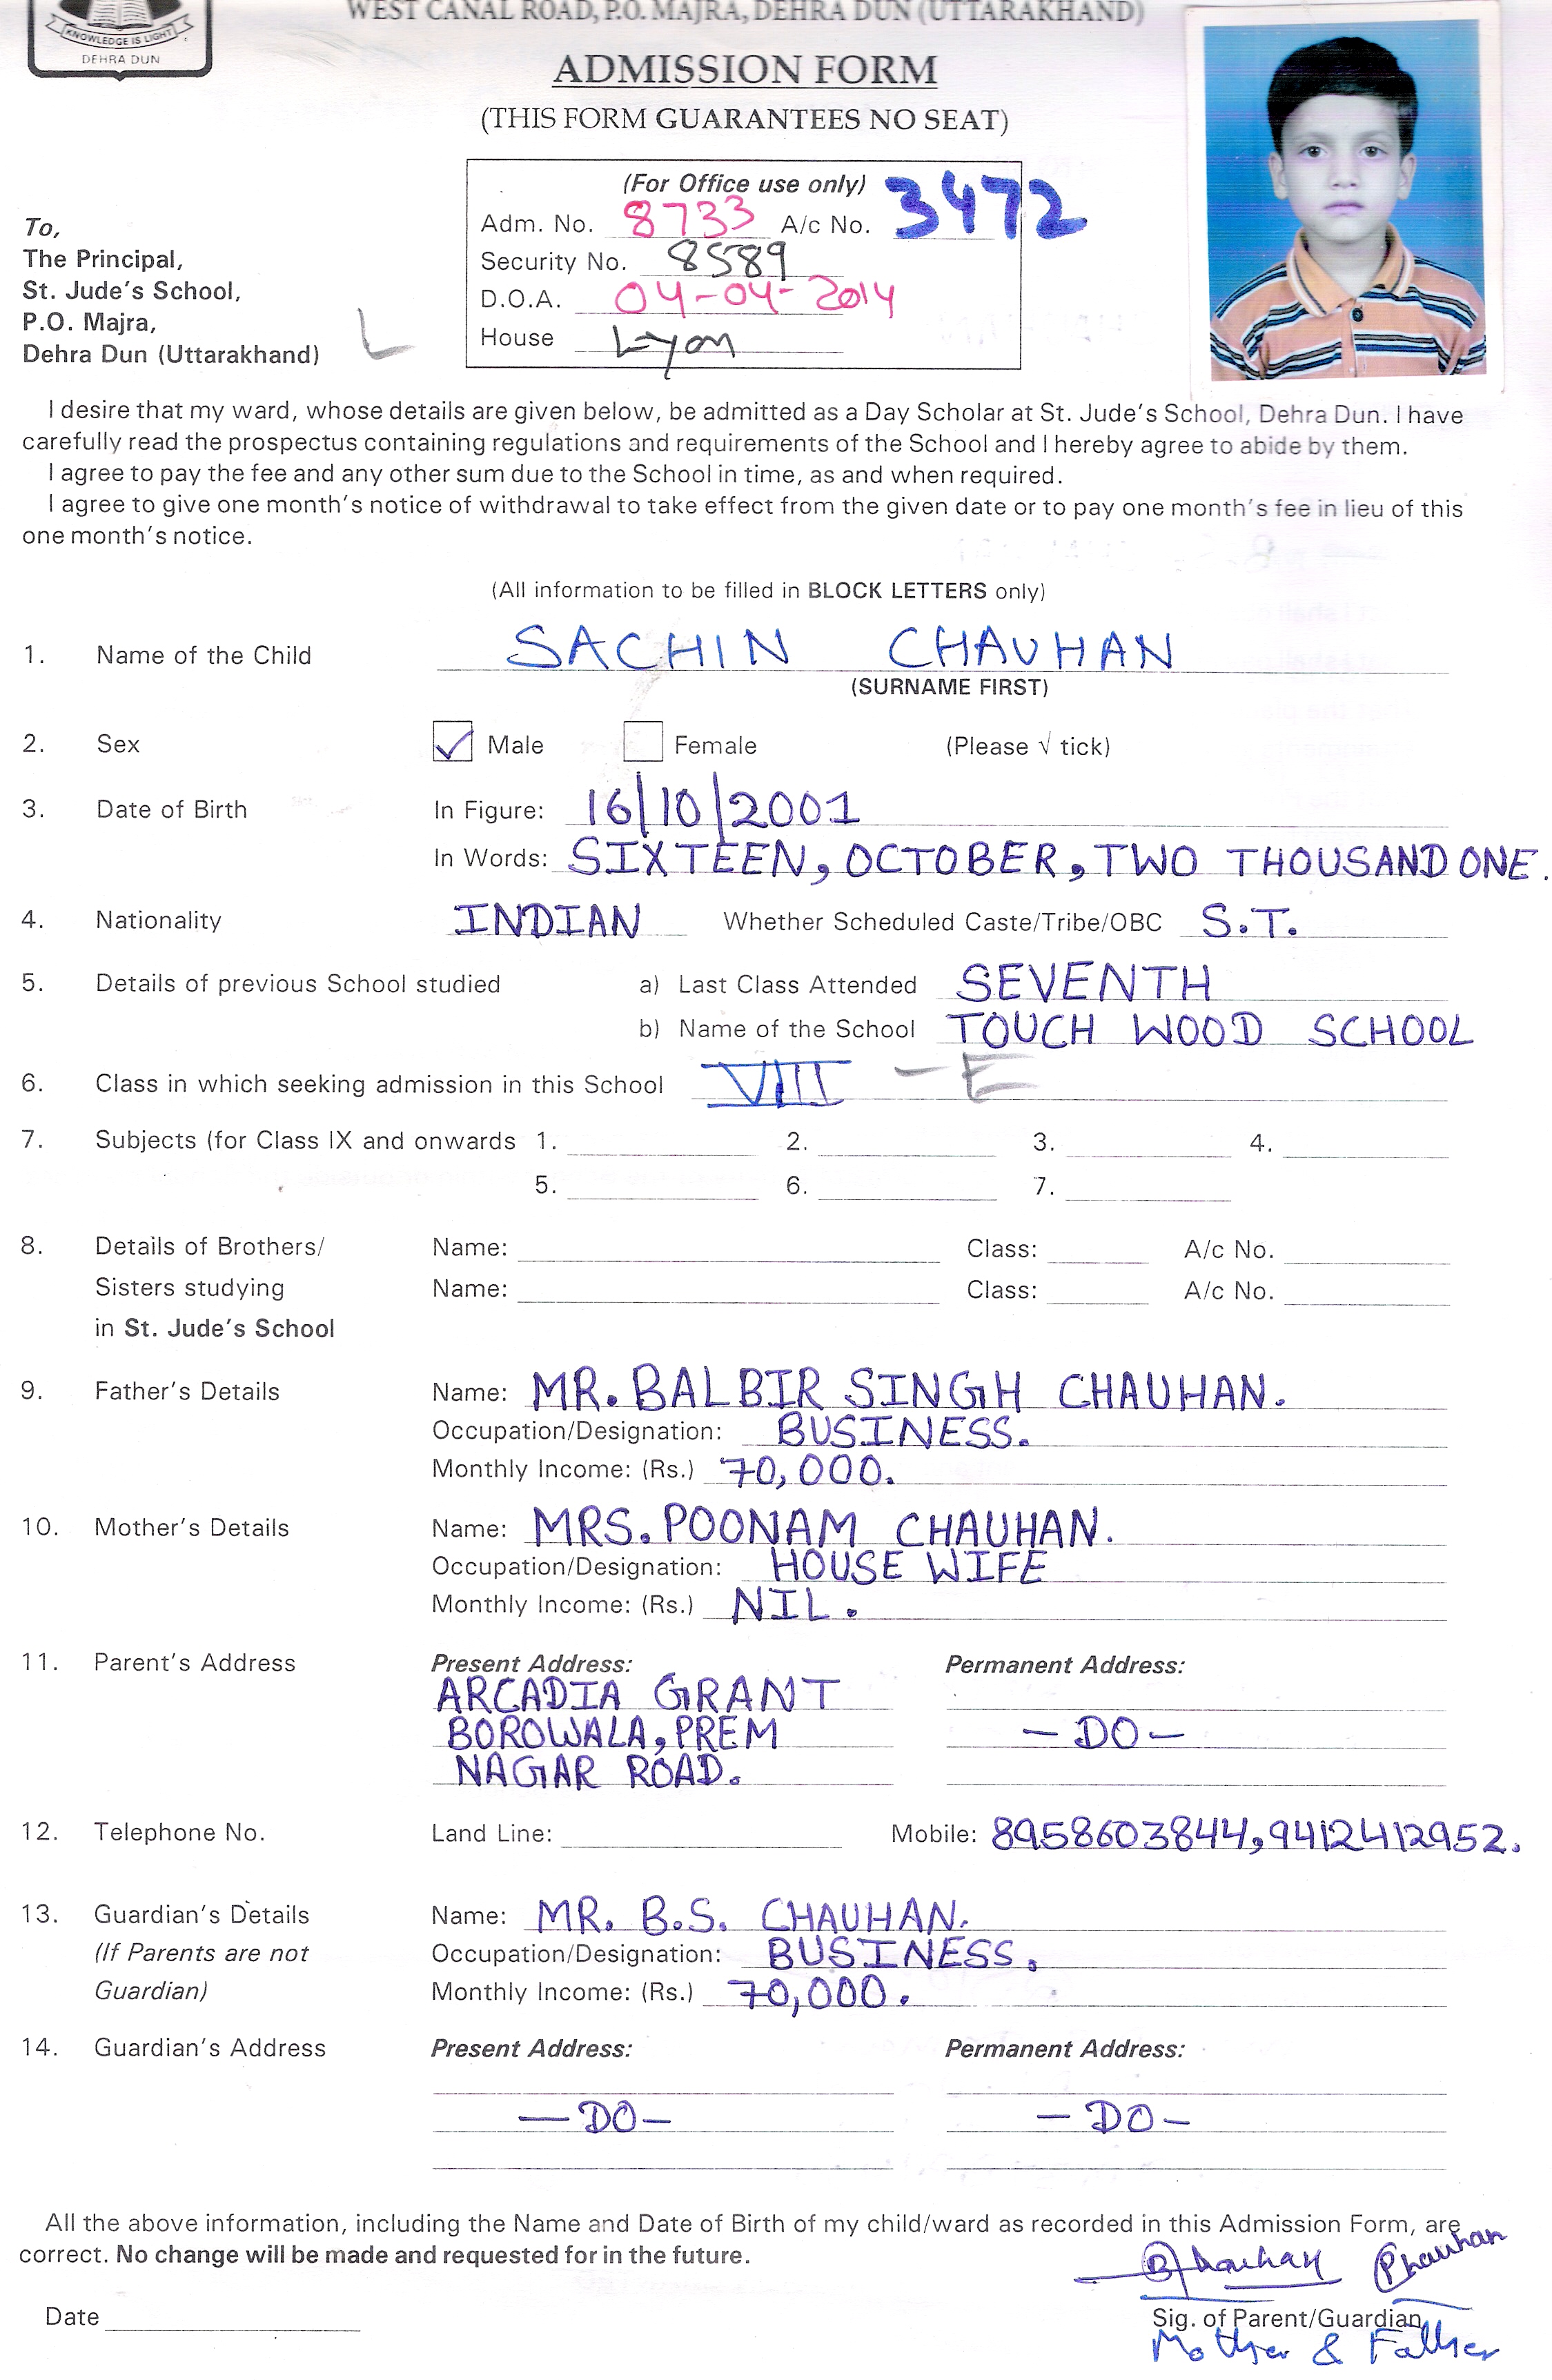 WEST CANAL ROAD, P.O. MAJRA, DEHRA DUN (UTTARAKHAND)
KNOWLEDGE IS LIGHT
DEHRA DUN
ADMISSION FORM
(THIS FORM GUARANTEES NO SEAT)
(For Office use only)
Adm. No. 8733 A/c No. 3472
Security No. 8589
D.O.A. 04-04-2014
House Lyon
To,
The Principal,
St. Jude's School,
P.O. Majra,
Dehra Dun (Uttarakhand)
L
I desire that my ward, whose details are given below, be admitted as a Day Scholar at St. Jude's School, Dehra Dun. I have
carefully read the prospectus containing regulations and requirements of the School and I hereby agree to abide by them.
I agree to pay the fee and any other sum due to the School in time, as and when required.
I agree to give one month's notice of withdrawal to take effect from the given date or to pay one month's fee in lieu of this
one month's notice.
(All information to be filled in BLOCK LETTERS only)
1. Name of the Child SACHIN CHAUHAN
(SURNAME FIRST)
2. Sex ✓ Male Female (Please √ tick)
3. Date of Birth In Figure: 16/10/2001
In Words: SIXTEEN, OCTOBER, TWO THOUSAND ONE.
4. Nationality INDIAN Whether Scheduled Caste/Tribe/OBC S.T.
5. Details of previous School studied a) Last Class Attended SEVENTH
b) Name of the School TOUCH WOOD SCHOOL
6. Class in which seeking admission in this School VIII - E
7. Subjects (for Class IX and onwards 1. 2. 3. 4.
5. 6. 7.
8. Details of Brothers/ Name: Class: A/c No.
Sisters studying Name: Class: A/c No.
in St. Jude's School
9. Father's Details Name: MR. BALBIR SINGH CHAUHAN.
Occupation/Designation: BUSINESS.
Monthly Income: (Rs.) 70,000.
10. Mother's Details Name: MRS. POONAM CHAUHAN.
Occupation/Designation: HOUSE WIFE
Monthly Income: (Rs.) NIL.
11. Parent's Address Present Address: Permanent Address:
ARCADIA GRANT
BOROWALA, PREM - DO -
NAGAR ROAD.
12. Telephone No. Land Line: Mobile: 8958603844, 9412412952.
13. Guardian's Details Name: MR. B.S. CHAUHAN.
(If Parents are not Occupation/Designation: BUSINESS.
Guardian) Monthly Income: (Rs.) 70,000.
14. Guardian's Address Present Address: Permanent Address:
- DO - - DO -
All the above information, including the Name and Date of Birth of my child/ward as recorded in this Admission Form, are
correct. No change will be made and requested for in the future.
BChauhan PChauhan
Date Sig. of Parent/Guardian
Mother & Father